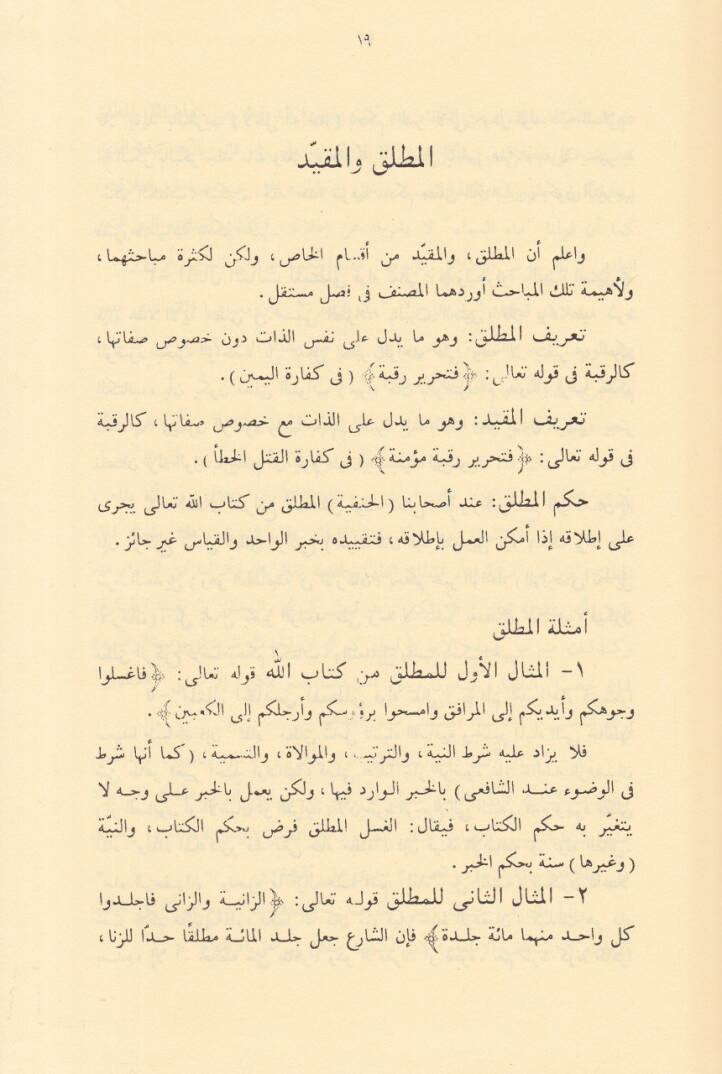 ١٩
المطلق والمقيّد
واعلم أن المطلق، والمقيّد من أقسام الخاص، ولكن لكثرة مباحثهما،
ولأهيمة تلك المباحث أوردهما المصنف فى فصل مستقل.
تعريف المطلق: وهو ما يدل على نفس الذات دون خصوص صفاتها،
كالرقبة فى قوله تعالى: ﴿فتحرير رقبة﴾ (فى كفارة اليمين).
تعريف المقيد: وهو ما يدل على الذات مع خصوص صفاتها، كالرقبة
فى قوله تعالى: ﴿فتحرير رقبة مؤمنة﴾ (فى كفارة القتل الخطأ).
حكم المطلق: عند أصحابنا (الحنفية) المطلق من كتاب الله تعالى يجرى
على إطلاقه إذا أمكن العمل بإطلاقه، فتقييده بخبر الواحد والقياس غير جائز.
أمثلة المطلق
١- المثال الأول للمطلق من كتاب الله قوله تعالى: ﴿فاغسلوا
وجوهكم وأيديكم إلى المرافق وامسحوا برؤوسكم وأرجلكم إلى الكعبين﴾.
فلا يزاد عليه شرط النية، والترتيب، والموالاة، والتسمية، (كما أنها شرط
فى الوضوء عند الشافعى) بالخبر الوارد فيها، ولكن يعمل بالخبر على وجه لا
يتغيّر به حكم الكتاب، فيقال: الغسل المطلق فرض بحكم الكتاب، والنيّة
(وغيرها) سنة بحكم الخبر.
٢- المثال الثانى للمطلق قوله تعالى: ﴿الزانية والزانى فاجلدوا
كل واحد منهما مائة جلدة﴾ فإن الشارع جعل جلد المائة مطلقًا حدًا للزنا،